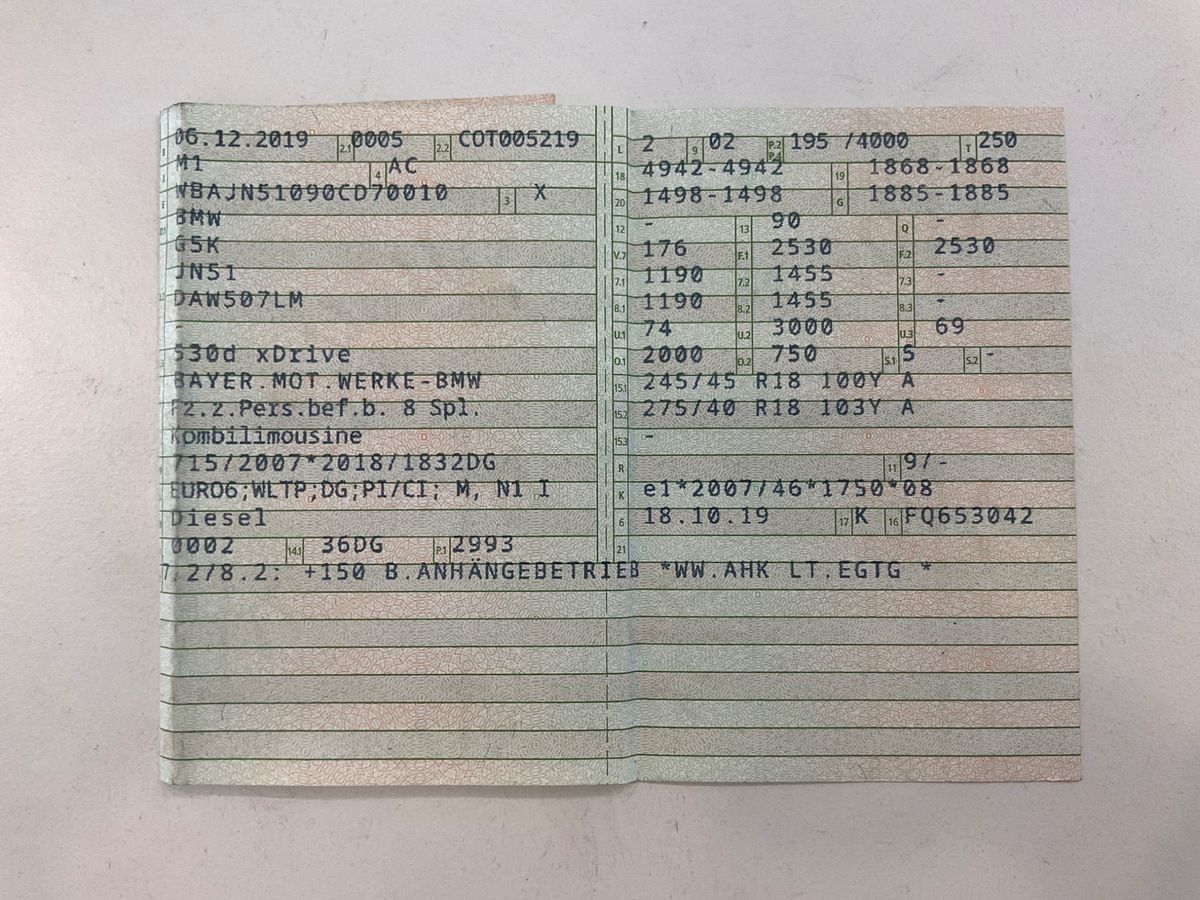 06.12.2019 2.1 0005 2.2 COT005219
M1 4 AC
WBAJN51090CD70010 3 X
BMW
G5K
JN51
DAW507LM
-
530d xDrive
BAYER.MOT.WERKE-BMW
Fz.z.Pers.bef.b. 8 Spl.
Kombilimousine
715/2007*2018/1832DG
EURO6;WLTP;DG;PI/CI; M, N1 I
Diesel
0002 14.1 36DG P.1 2993
L 2 9 02 P.2 P.4 195 /4000 T 250
18 4942-4942 19 1868-1868
20 1498-1498 G 1885-1885
12 - 13 90 Q -
V.7 176 F.1 2530 F.2 2530
7.1 1190 7.2 1455 7.3 -
8.1 1190 8.2 1455 8.3 -
U.1 74 U.2 3000 U.3 69
O.1 2000 O.2 750 S.1 5 S.2 -
15.1 245/45 R18 100Y A
15.2 275/40 R18 103Y A
15.3 -
R 11 9/-
K e1*2007/46*1750*08
6 18.10.19 17 K 16 FQ653042
21
7.2/8.2: +150 B.ANHÄNGEBETRIEB *WW.AHK LT.EGTG *